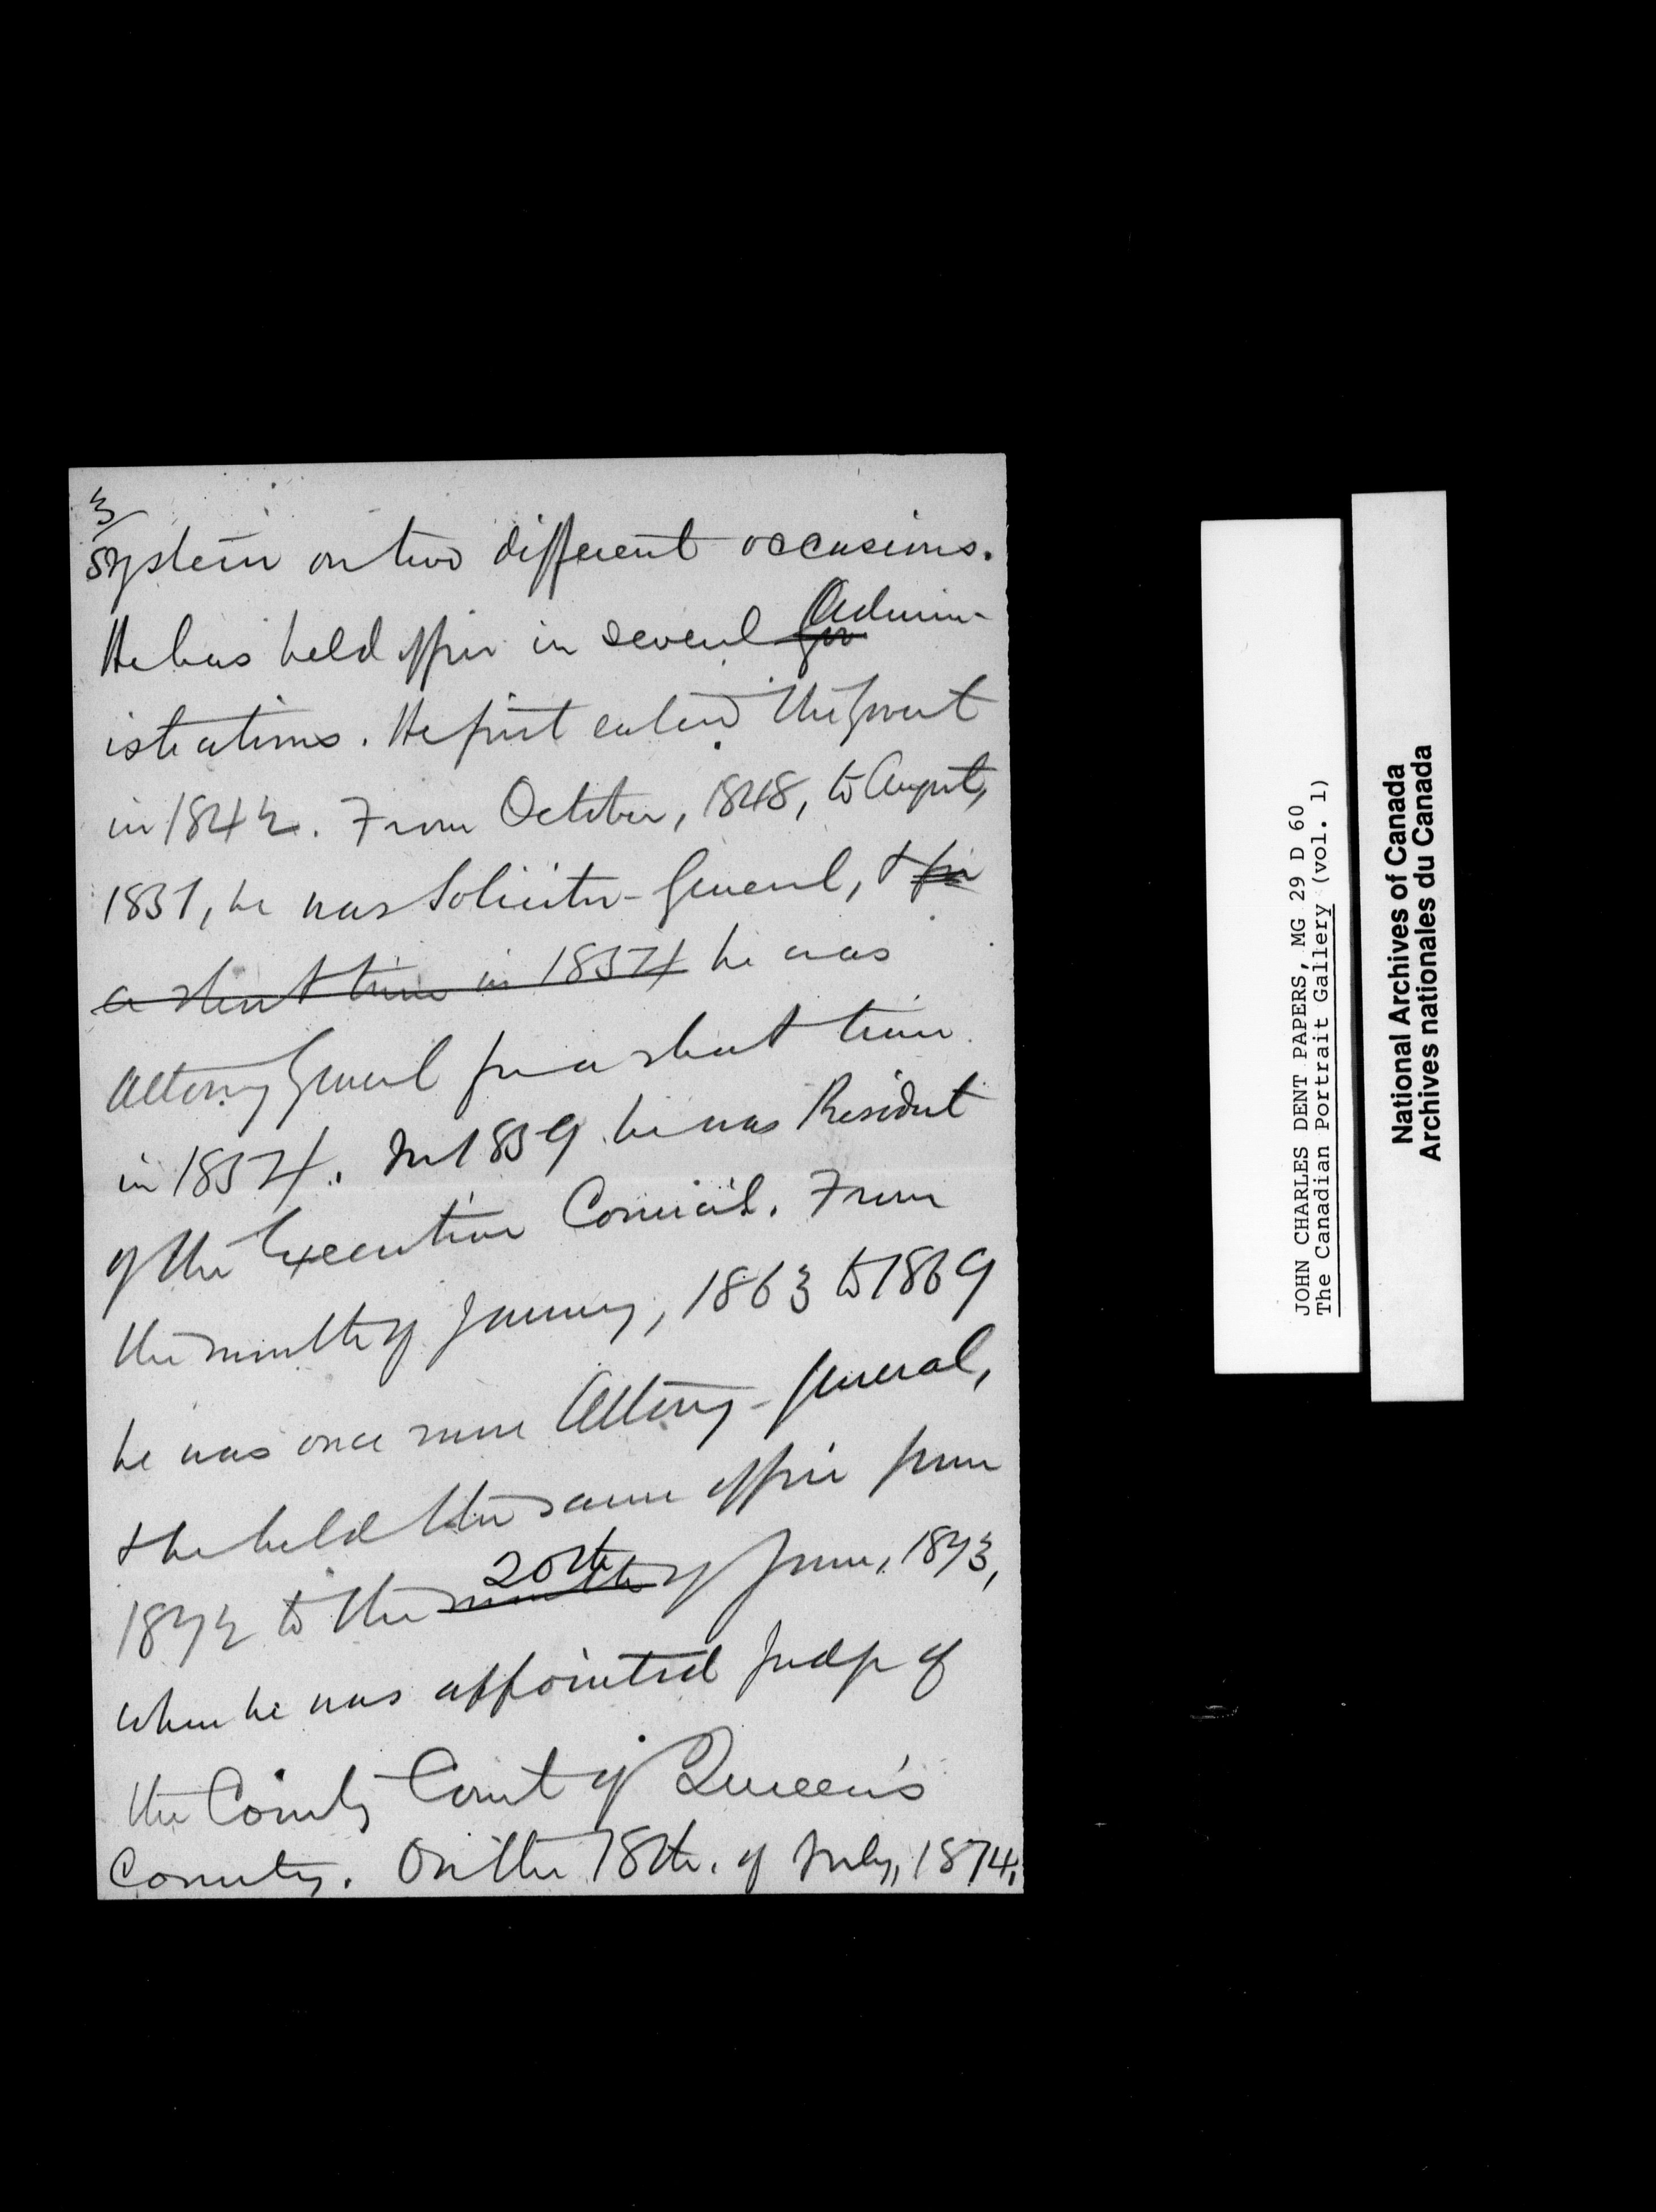 3/
system on two different occasions.
He has held office in several Gov Admin-
istrations. He first entered the Govnt
in 1842. From October, 1848, to August,
1851, he was Solicitor-General, & for
a short time in 1854 he was
Attorney General for a short time
in 1854. In 1859 he was President
of the Executive Council. From
the month of January, 1863 to 1869
he was once more Attorney-General,
& he held the same office from
1872 to the month 20th of June, 1873,
when he was appointed Judge of
the County Court of Queen's
County. On the 18th. of July, 1874,
JOHN CHARLES DENT PAPERS, MG 29 D 60
The Canadian Portrait Gallery (vol. 1)
National Archives of Canada
Archives nationales du Canada